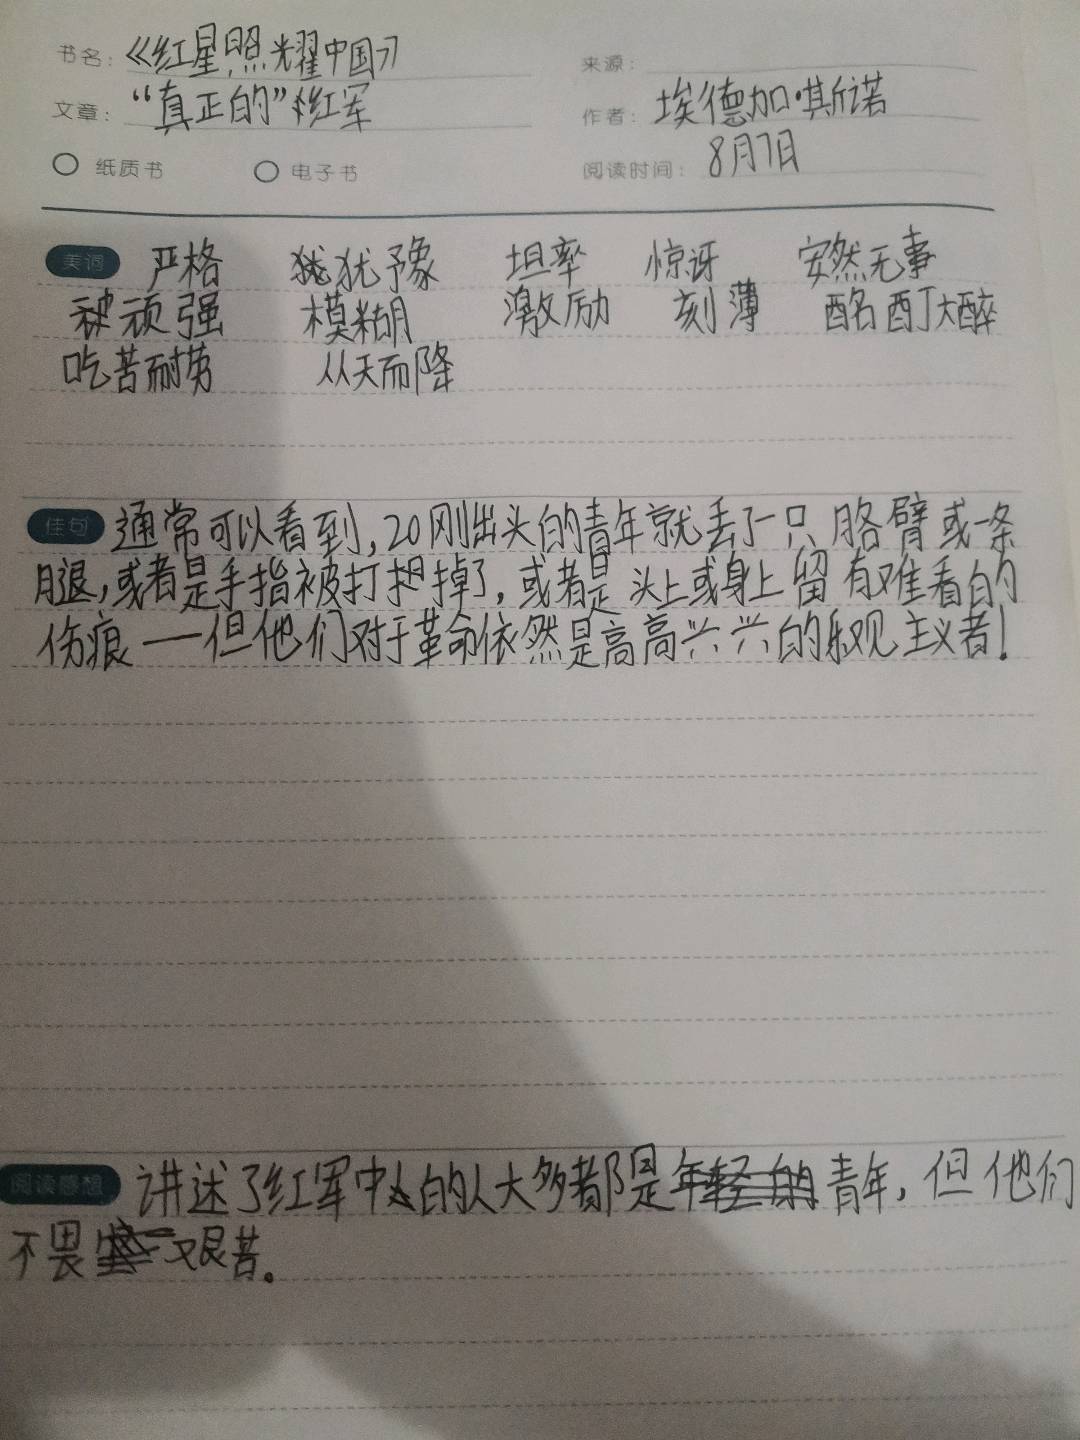 书名：《红星照耀中国》 来源：
文章：“真正的”红军 作者：埃德加·斯诺
纸质书 电子书 阅读时间：8月7日
美词 严格 犹豫 坦率 惊讶 安然无事
顽强 模糊 激励 刻薄 酩酊大醉
吃苦耐劳 从天而降
佳句 通常可以看到，20刚出头的青年就丢了一只胳臂或一条
腿，或者是手指被打掉了，或者是头上或身上留有难看的
伤痕——但他们对于革命依然是高高兴兴的乐观主义者！
阅读感想 讲述了红军中的人大多都是青年，但他们
不畏艰苦。